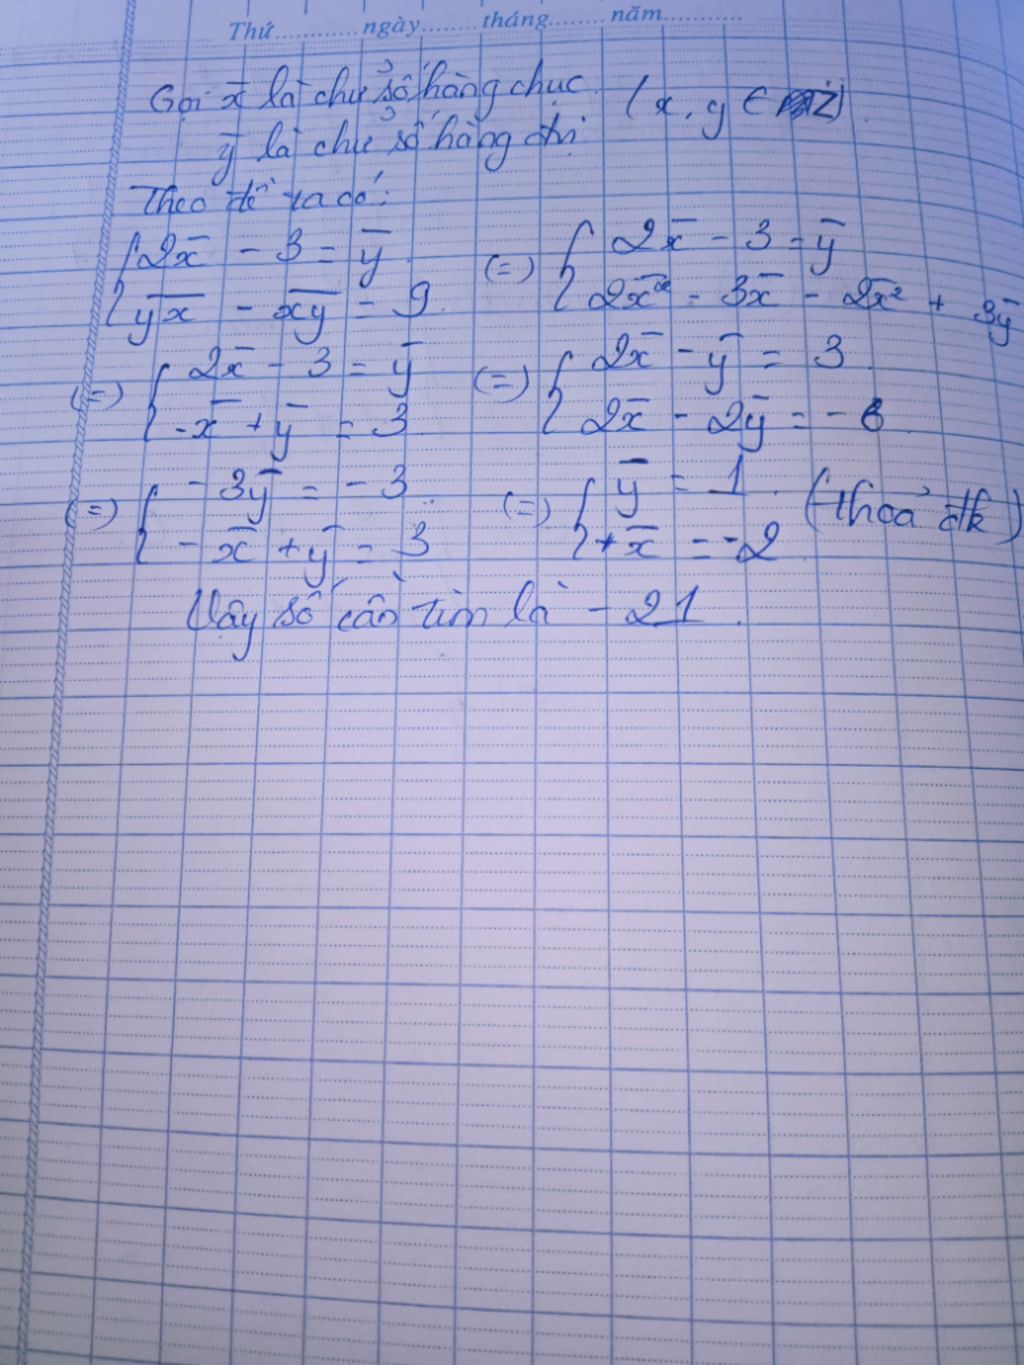 Thứ............ngày........tháng........năm............
Gọi x̅ là chữ số hàng chục (x, y ∈ Z)
y̅ là chữ số hàng đvị
Theo đề ta có:
{ 2x̅ - 3 = y̅ (=) { 2x̅ - 3 = y̅
{ y̅x̅ - x̅y̅ = 9 { 2x̅² - 3x̅ - 2x̅² + 3y̅
(=) { 2x̅ - 3 = y̅ (=) { 2x̅ - y̅ = 3
{ -x̅ + y̅ = 3 { 2x̅ - 2y̅ = -6
(=) { -3y̅ = -3 (=) { y̅ = 1 (thoả đk)
{ -x̅ + y̅ = 3 { +x̅ = -2
Vậy số cần tìm là -21.